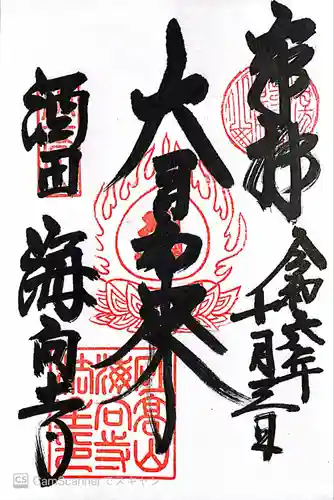 奉拝
令和六年
十月三日
大日如来
酒田
海向寺
CS CamScanner でスキャン